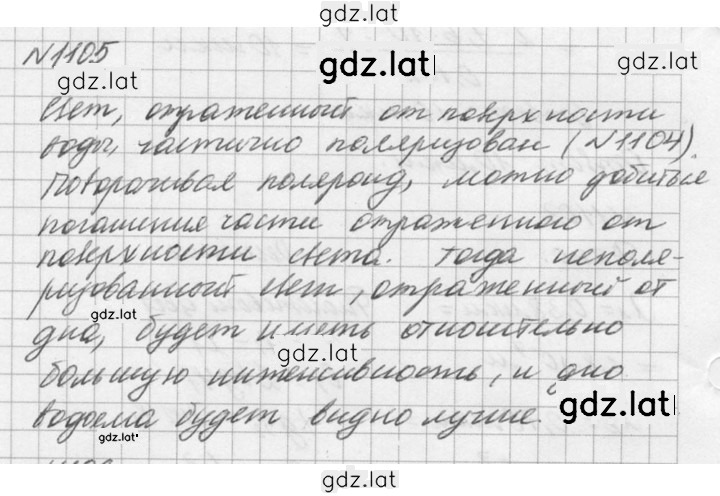 gdz.lat
N1105
gdz.lat
gdz.lat
gdz.lat
Свет, отраженный от поверхности
воды, частично поляризован (N1104).
Поворачивая поляроид, можно добиться
погашения части отраженного от
поверхности света. Тогда неполя-
ризованный свет, отраженный от
gdz.lat
дна, будет иметь относительно
gdz.lat
большую интенсивность, и дно
gdz.lat
водоема будет видно лучше.
gdz.lat
gdz.lat